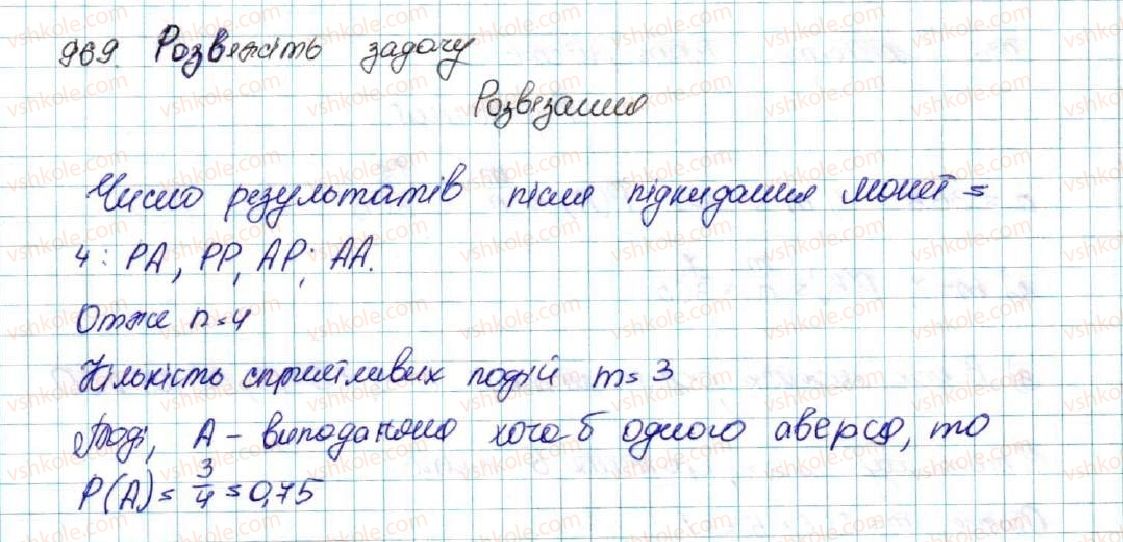 969. Розвяжіть задачу
Розвязання
Число результатів після підкидання монет =
4: РА, РР, АР; АА.
Отже n=4
Кількість сприятливих подій m=3
Тоді, А – виподаконня хоча б одного аверса, то
P(A) = 3/4 = 0,75